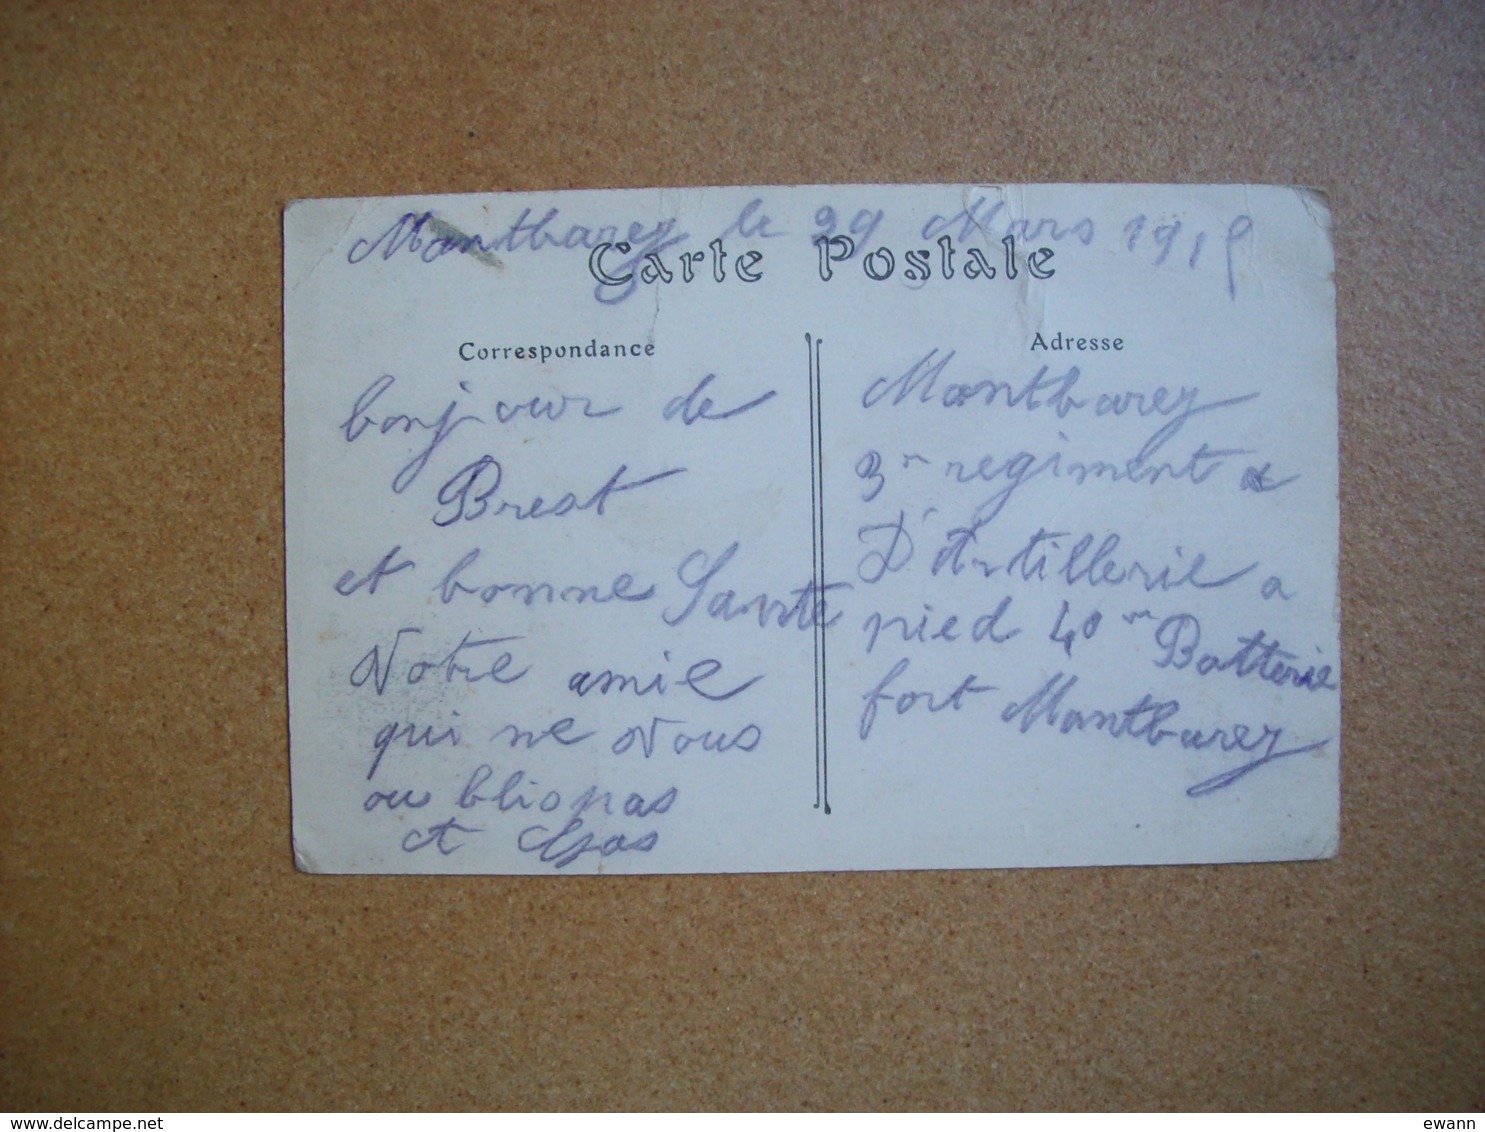 Montbarey le 29 Mars 1915
Carte Postale
Correspondance
bonjour de
Brest
et bonne Sante
Votre amie
qui ne vous
oublio pas
et
Adresse
Montbarey
3m regiment
D'Artillerie a
pied 40m Batterie
fort Montbarey
delcampe.net
ewann